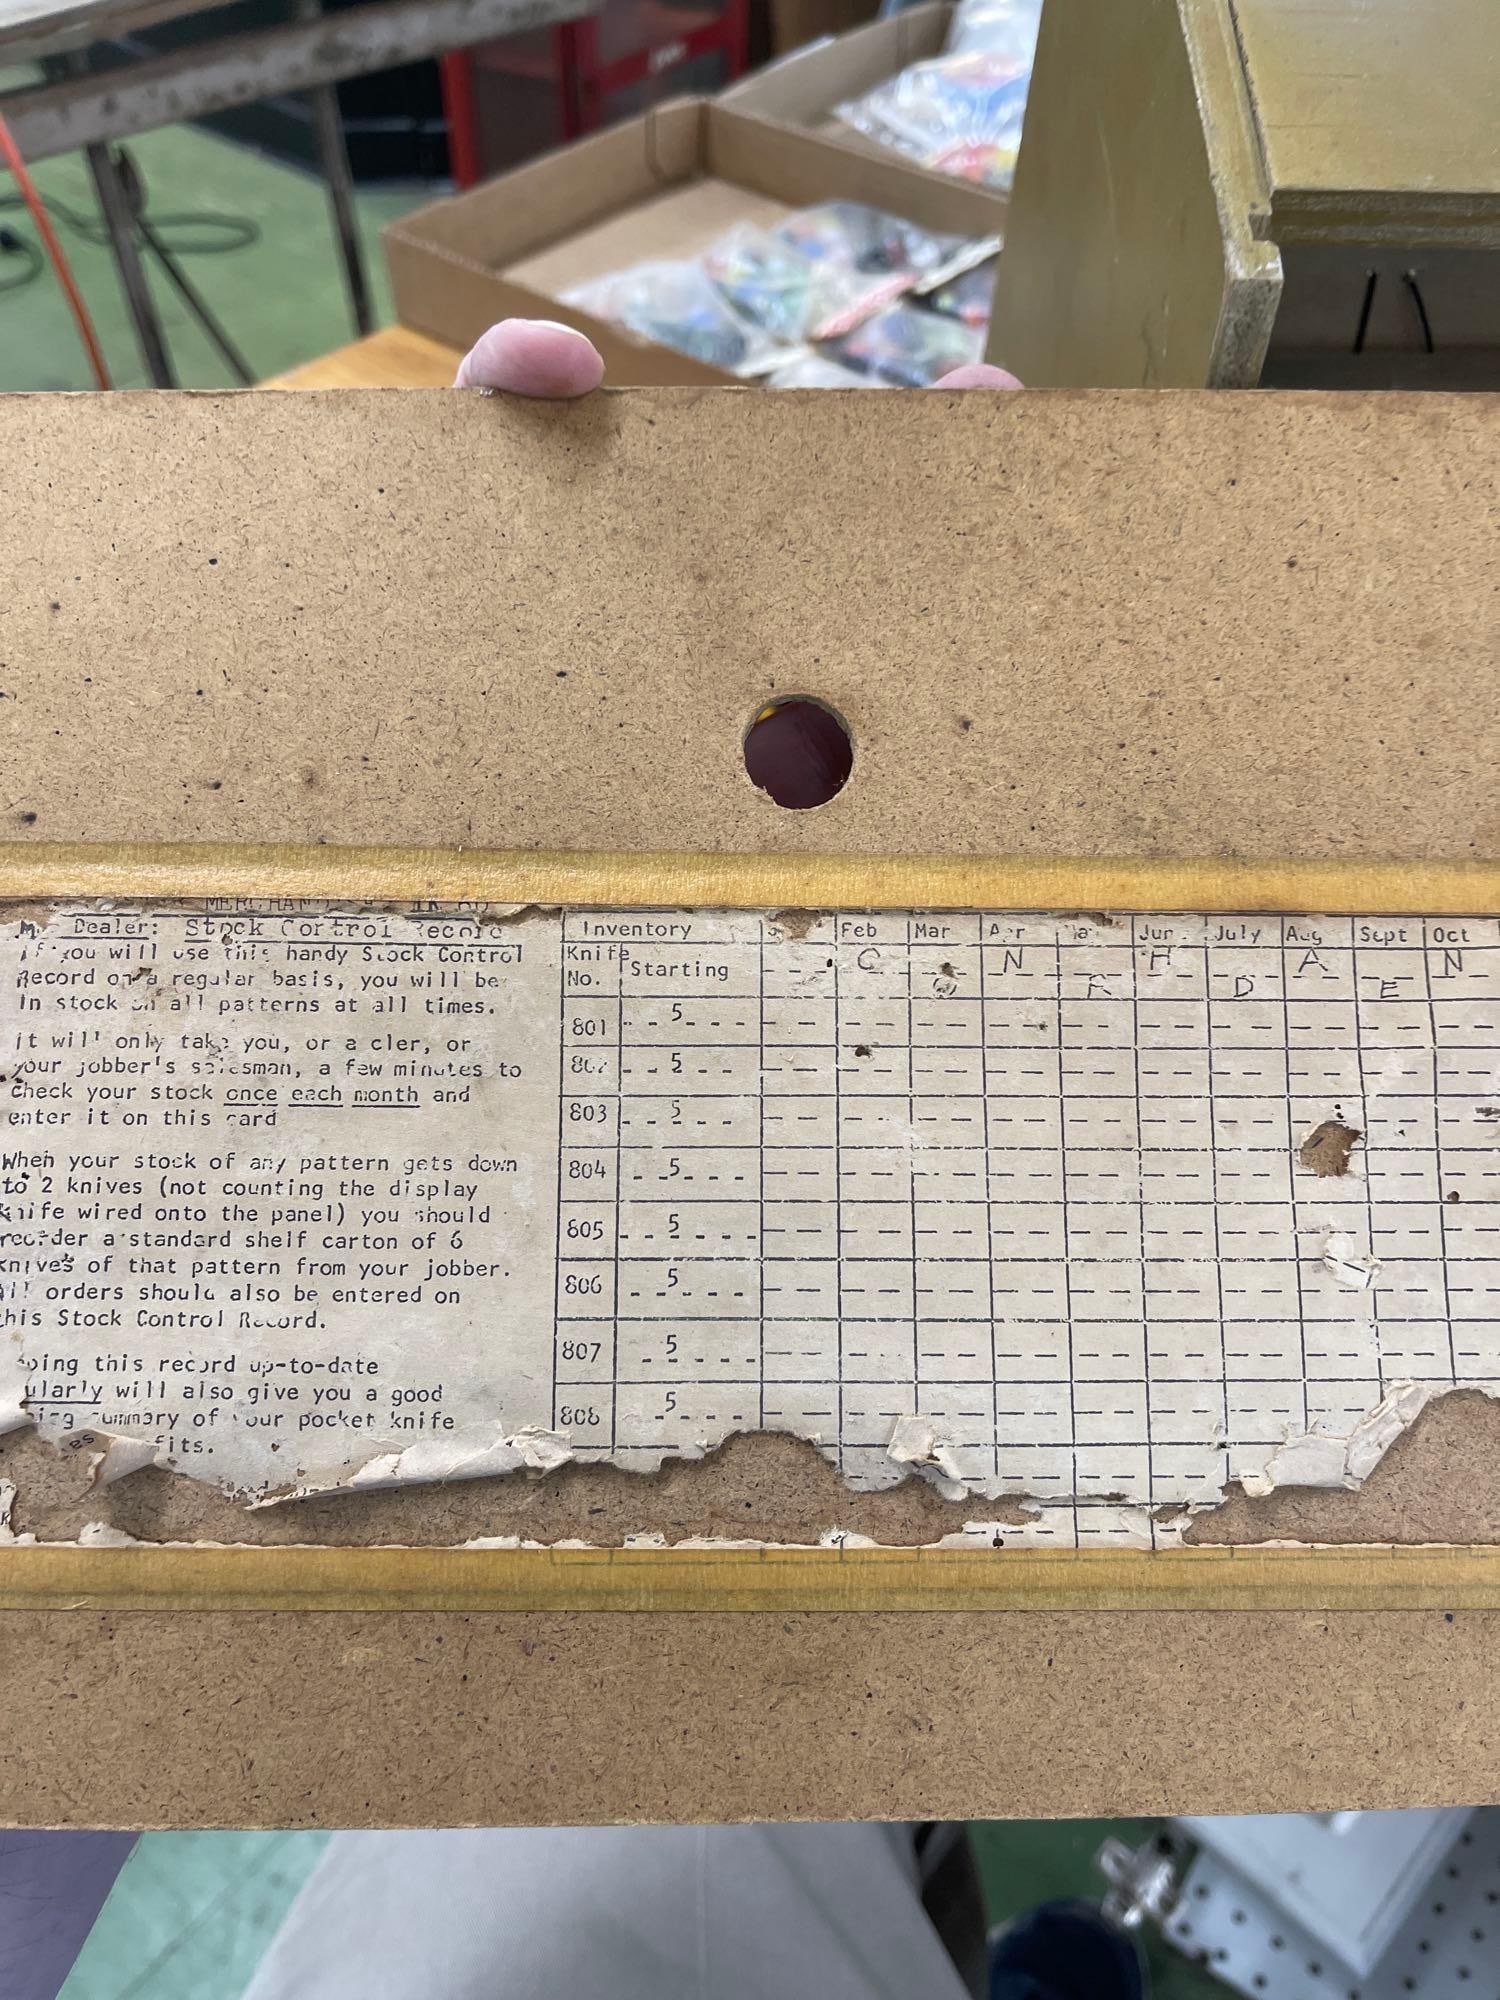 Dealer: Stock Control Record
If you will use this handy Stock Control
Record on a regular basis, you will be
In stock on all patterns at all times.
It will only take you, or a cler, or
your jobber's salesman, a few minutes to
check your stock once each month and
enter it on this card
When your stock of any pattern gets down
to 2 knives (not counting the display
knife wired onto the panel) you should
reorder a standard shelf carton of 6
knives of that pattern from your jobber.
All orders should also be entered on
this Stock Control Record.
this record up-to-date
ularly will also give you a good
summary of your pocket knife
fits.
Inventory Feb Mar Apr Jun July Aug Sept Oct
Knife No. Starting
C N H A N
O R D E
801 5
802 5
803 5
804 5
805 5
806 5
807 5
808 5